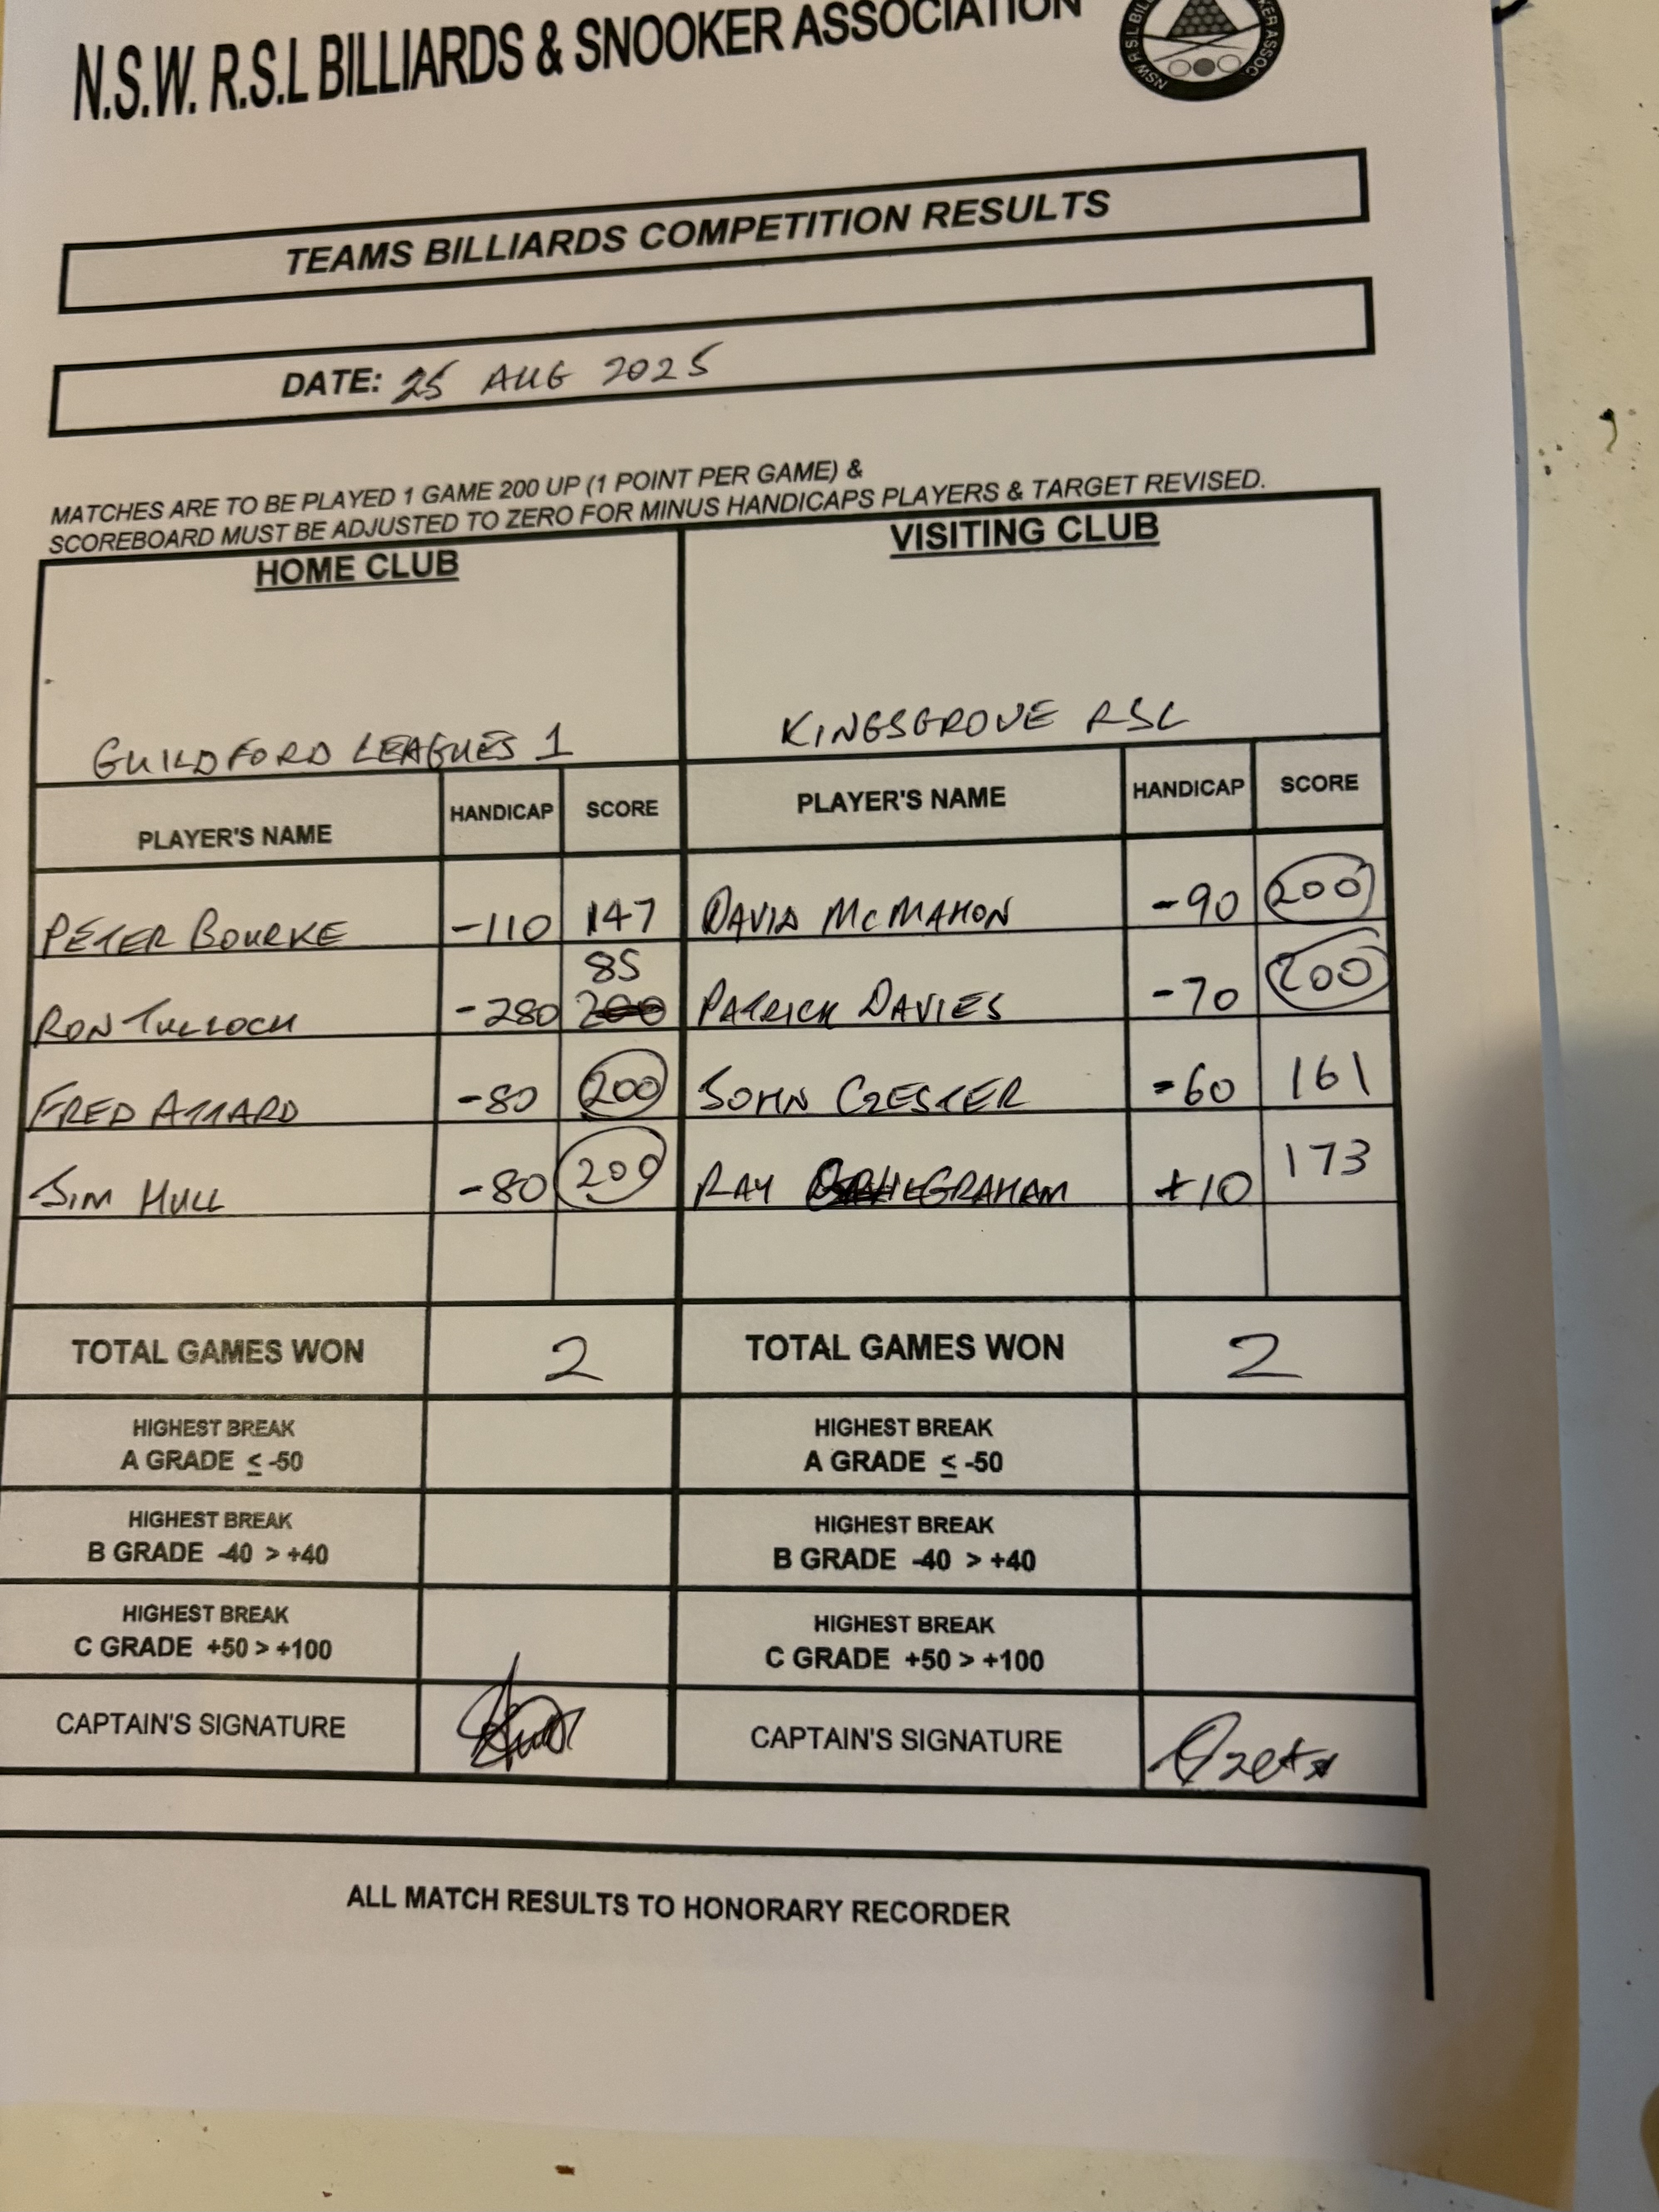 N.S.W. R.S.L BILLIARDS & SNOOKER ASSOCIATION
TEAMS BILLIARDS COMPETITION RESULTS
DATE: 25 AUG 2025
MATCHES ARE TO BE PLAYED 1 GAME 200 UP (1 POINT PER GAME) &
SCOREBOARD MUST BE ADJUSTED TO ZERO FOR MINUS HANDICAPS PLAYERS & TARGET REVISED.
HOME CLUB VISITING CLUB
GUILDFORD LEAGUES 1 KINGSGROVE RSL
PLAYER'S NAME HANDICAP SCORE PLAYER'S NAME HANDICAP SCORE
PETER BOURKE -110 147 DAVID McMAHON -90 200
85
RON TULLOCH -280 200 PATRICK DAVIES -70 200
FRED ATTARD -80 200 JOHN CZESTER -60 161
JIM HULL -80 200 RAY GRAHAM +10 173
TOTAL GAMES WON 2 TOTAL GAMES WON 2
HIGHEST BREAK HIGHEST BREAK
A GRADE ≤ -50 A GRADE ≤ -50
HIGHEST BREAK HIGHEST BREAK
B GRADE -40 > +40 B GRADE -40 > +40
HIGHEST BREAK HIGHEST BREAK
C GRADE +50 > +100 C GRADE +50 > +100
CAPTAIN'S SIGNATURE CAPTAIN'S SIGNATURE
ALL MATCH RESULTS TO HONORARY RECORDER